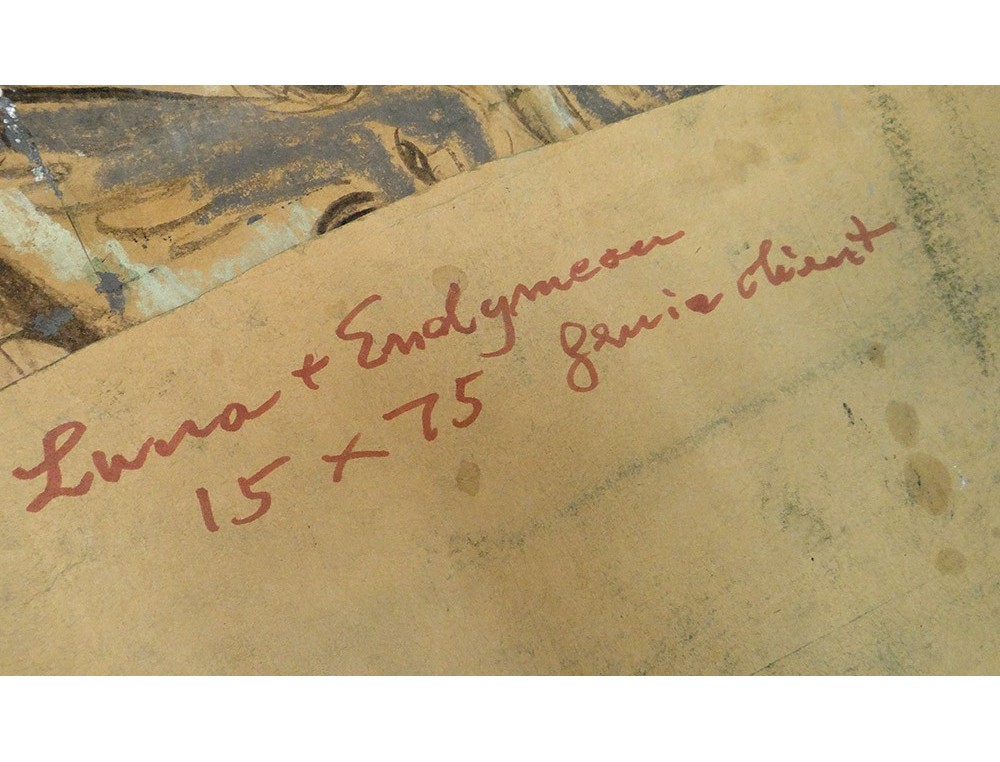 Luna + Endymeon
15 x 75 genie client